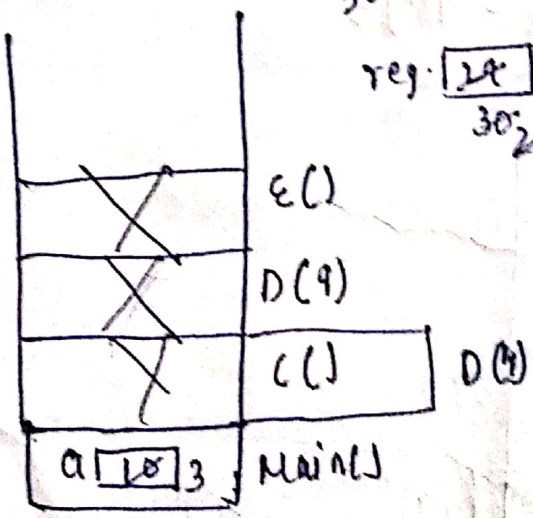 reg. 24
30 2
E()
D(9)
C() D(4)
a 10 3 Main()